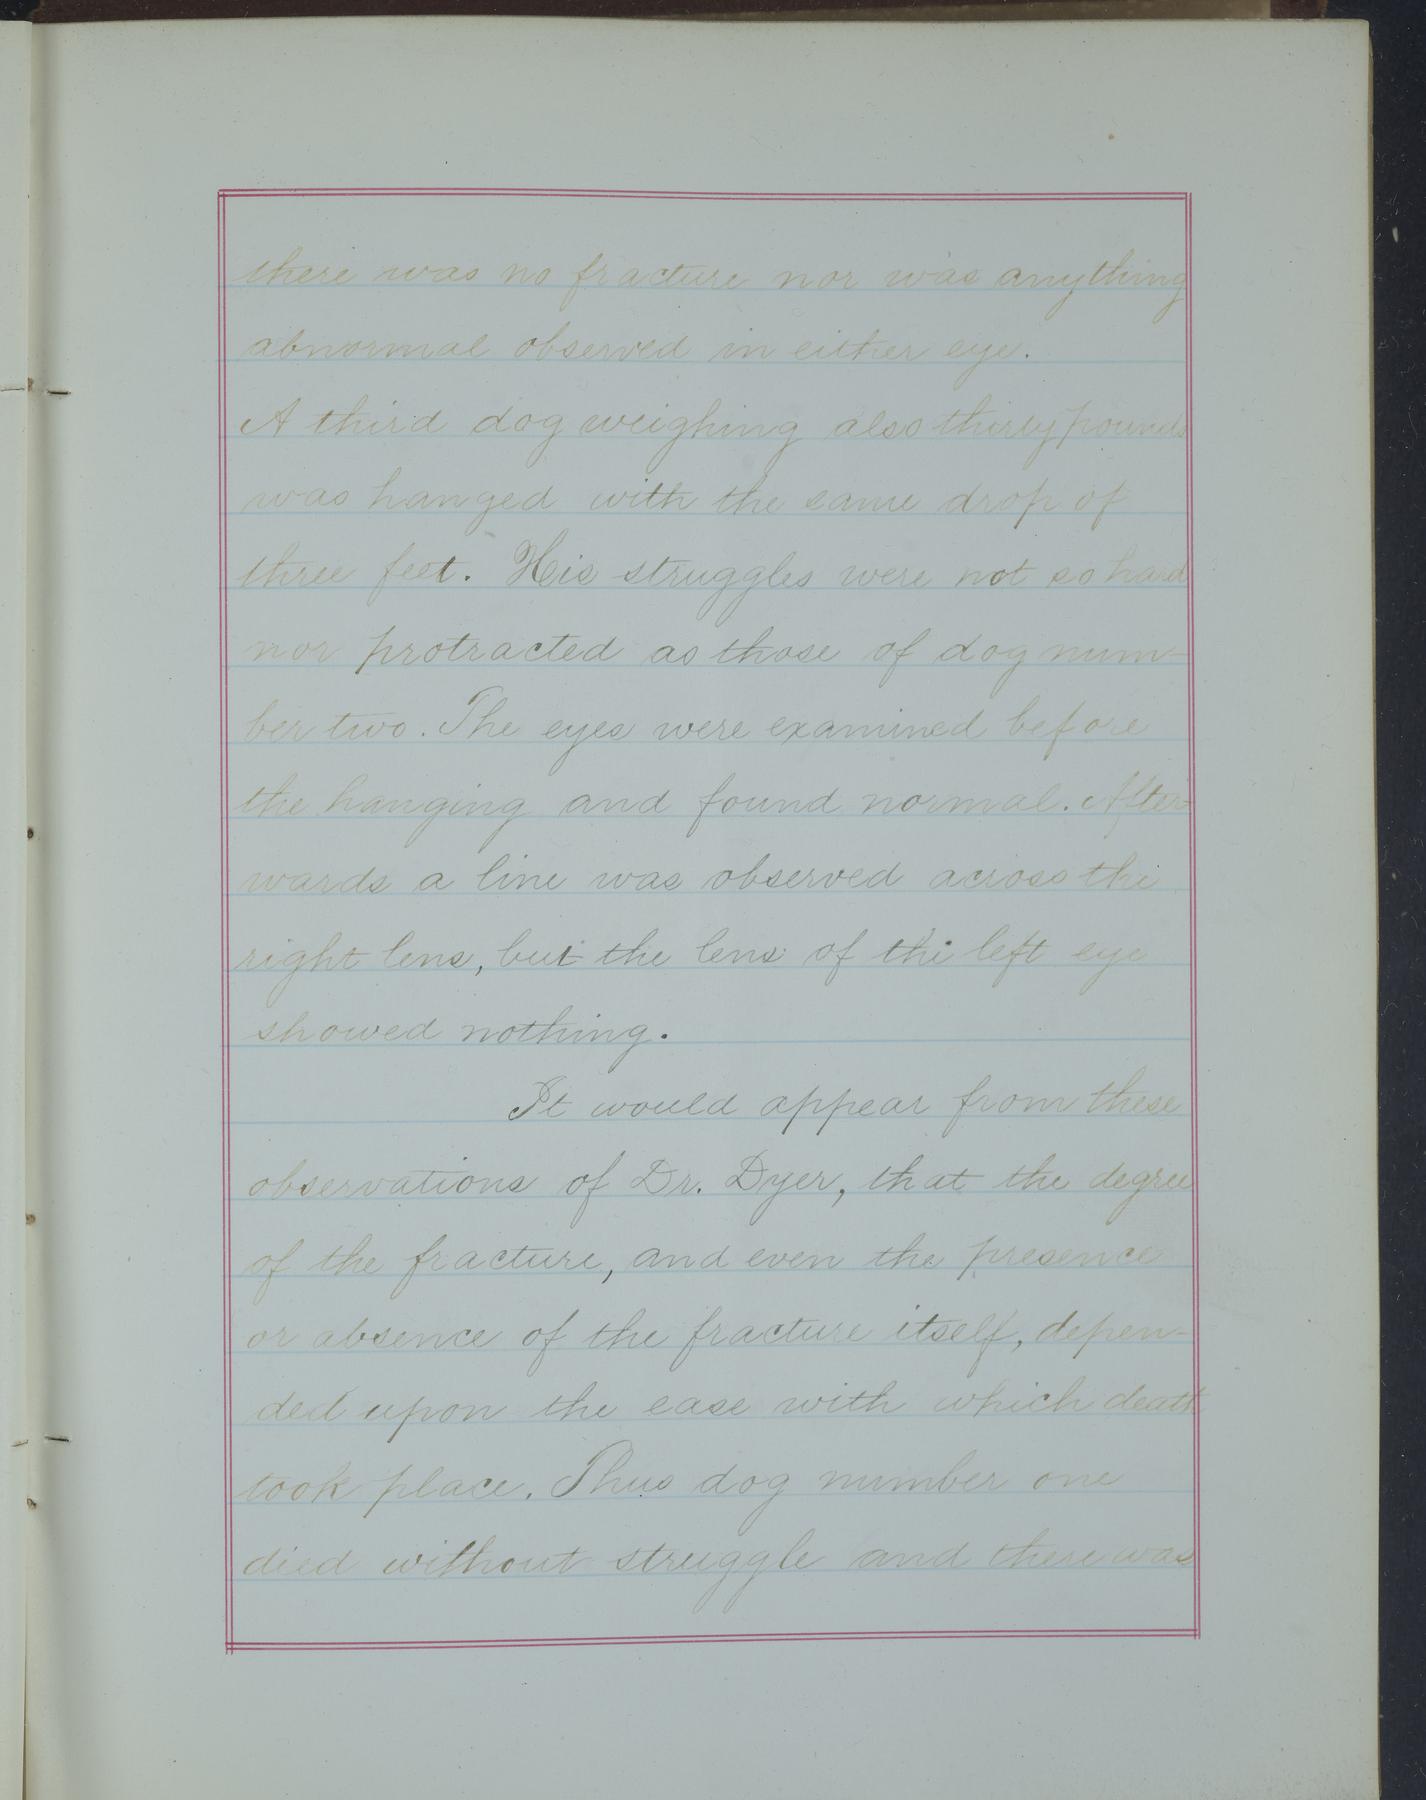 there was no fracture nor was anything
abnormal observed in either eye.
A third dog weighing also thirty pounds
was hanged with the same drop of
three feet. His struggles were not so hard
nor protracted as those of dog num-
ber two. The eyes were examined before
the hanging and found normal. After-
wards a line was observed across the
right lens, but the lens of the left eye
showed nothing.
It would appear from these
observations of Dr. Dyer, that the degree
of the fracture, and even the presence
or absence of the fracture itself, depen-
ded upon the ease with which death
took place. Thus dog number one
died without struggle and there was